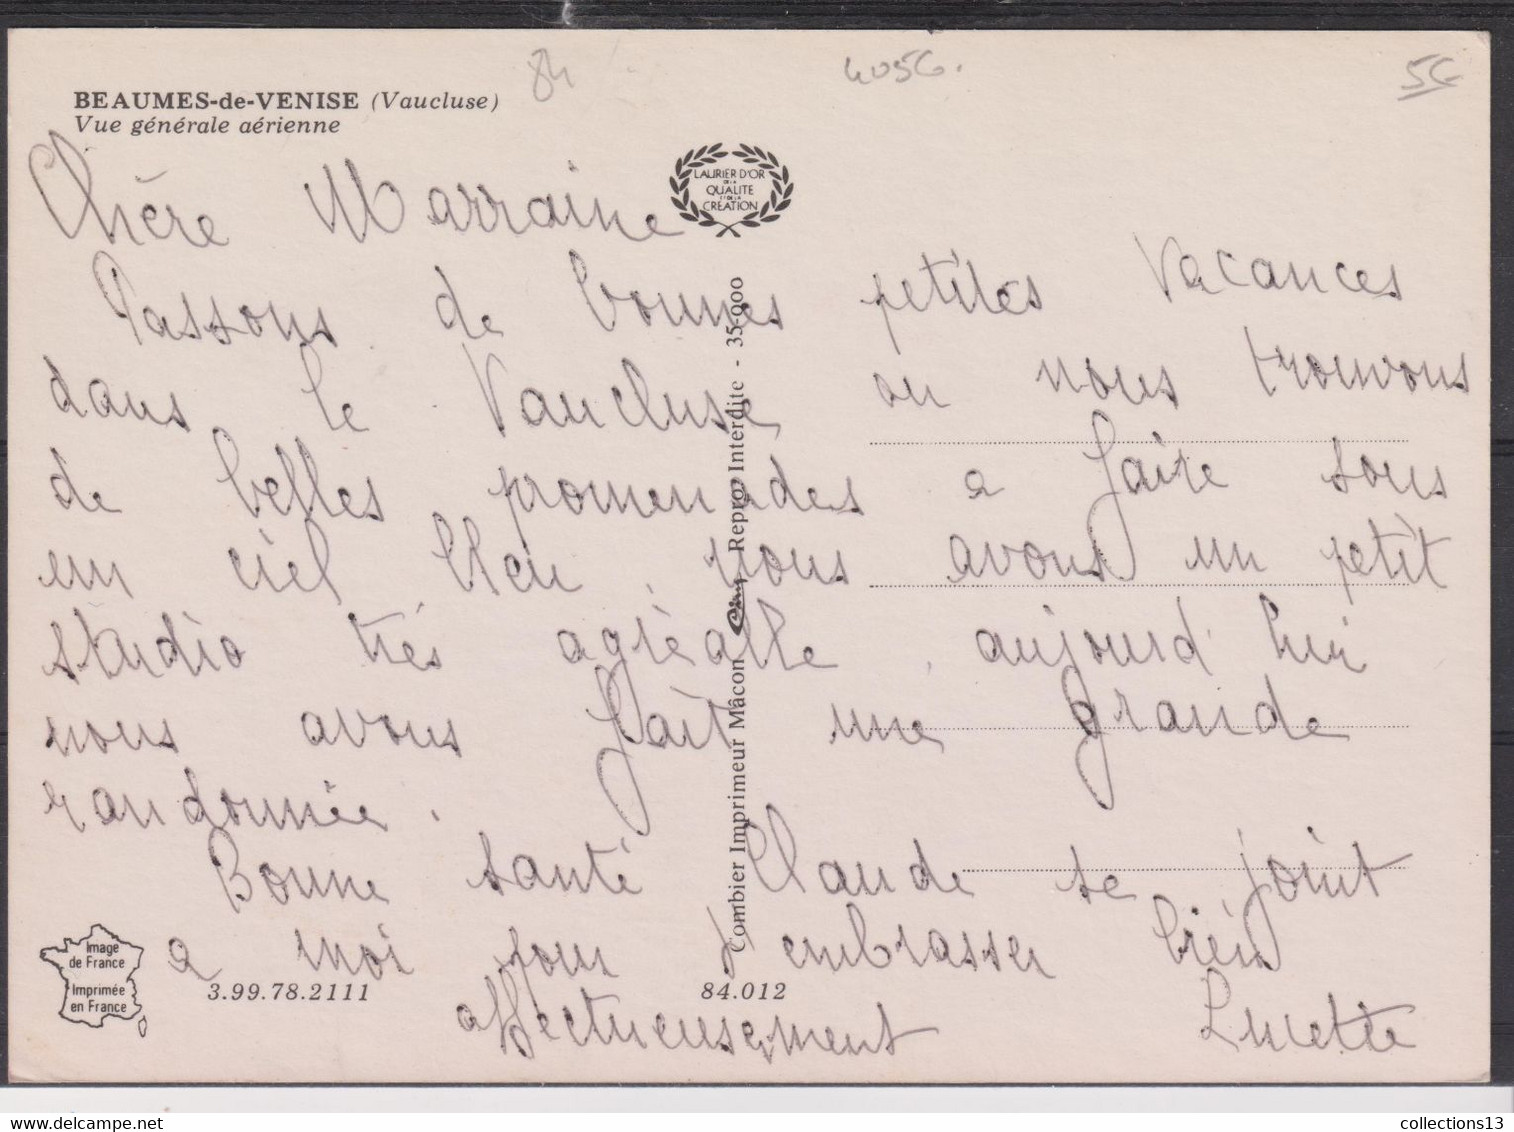 84
4056.
56
BEAUMES-de-VENISE (Vaucluse)
Vue générale aérienne
LAURIER D'OR
DE LA
QUALITE
ET DE LA
CREATION
Chère Marraine
Passons de bonnes petites vacances
dans le Vaucluse, ou nous trouvons
de belles promenades a faire sous
un ciel bleu, nous avons un petit
studio trés agréable, aujourd'hui
nous avons fait une grande
randonnée.
Bonne santé Claude se joint
a moi pour t'embrasser bien
affectueusement Lucette
Combier Imprimeur Mâcon Cim Repro. Interdite - 35-000
Image
de France
Imprimée
en France
3.99.78.2111
84.012
delcampe.net
collections13